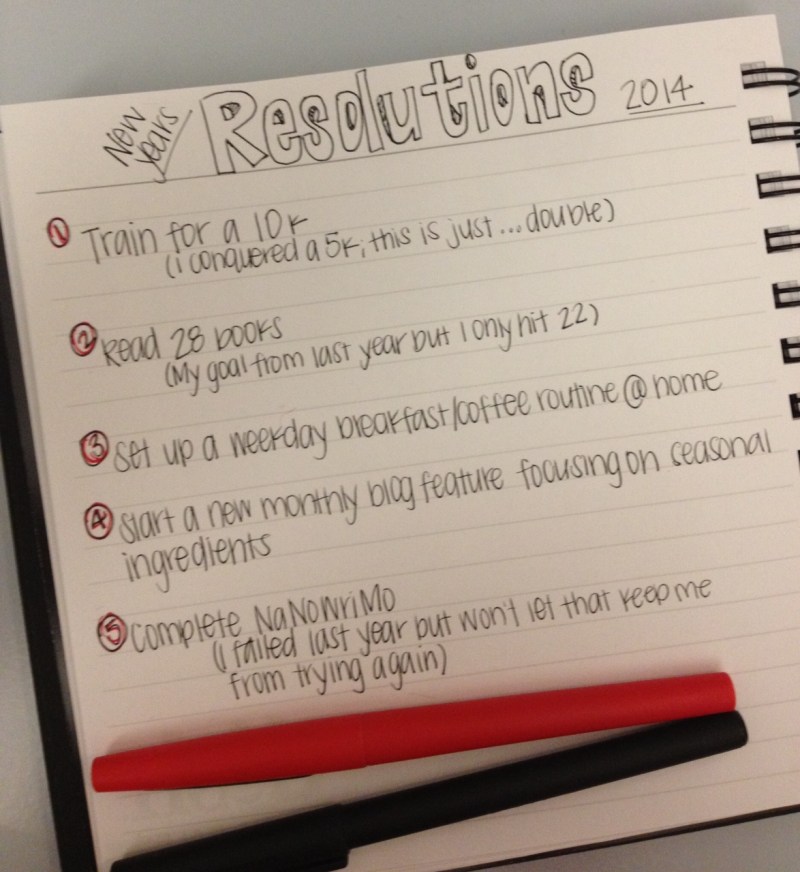 New Years Resolutions 2014
① Train for a 10k
(i conquered a 5k; this is just...double)
② Read 28 books
(My goal from last year but I only hit 22)
③ Set up a weekday breakfast/coffee routine @ home
④ Start a new monthly blog feature focusing on seasonal
ingredients
⑤ Complete NaNoWriMo
(I failed last year but won't let that keep me
from trying again)